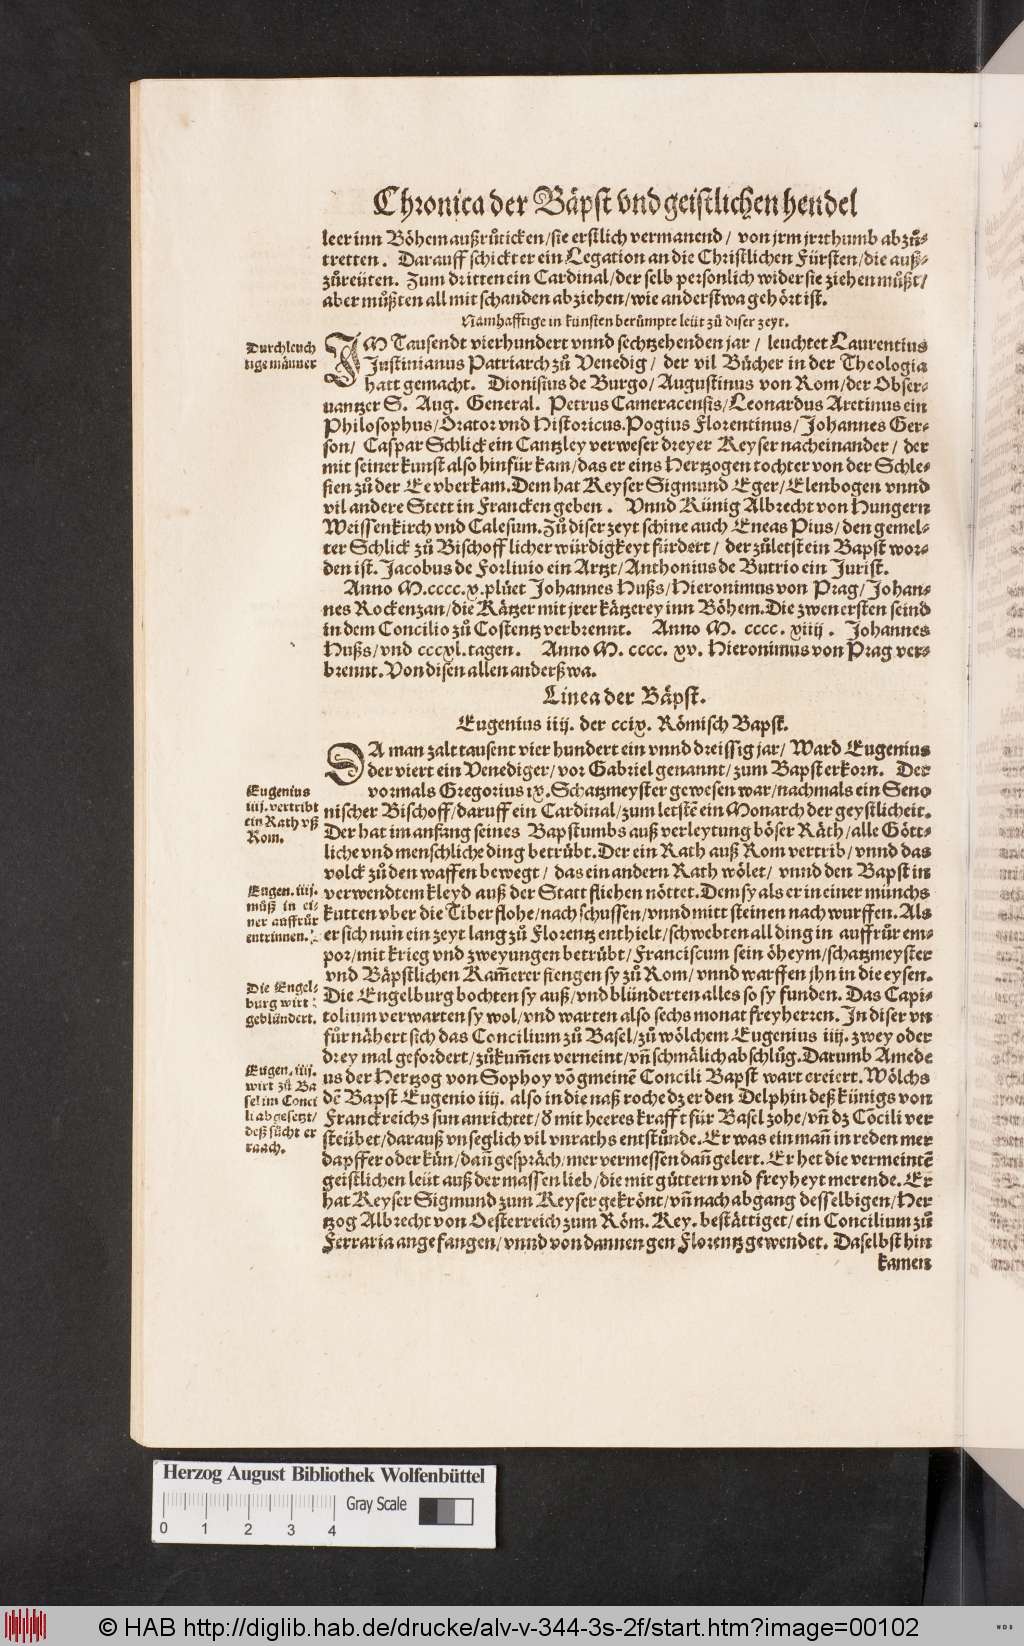 Chronica der Bäpst vnd geistlichen hendel
leer inn Böhem außrůticken/sie erstlich vermanend / von jrm jrrthumb abzů-
tretten. Darauff schickt er ein Legation an die Christlichen Fürsten/die auß-
zůreüten. Zum dritten ein Cardinal/der selb personlich wider sie ziehen můßt/
aber můßten all mit schanden abziehen/wie anderstwa gehört ist.
Namhafftige in künsten berümpte leüt zů diser zeyt.
Durchleuch
tige männer
IM Tausendt vierhundert vnnd sechtzehenden jar / leuchtet Laurentius
Justinianus Patriarch zů Venedig / der vil Bücher in der Theologia
hatt gemacht. Dionisius de Burgo/Augustinus von Rom/der Obser-
uantzer S. Aug. General. Petrus Cameracensis/Leonardus Aretinus ein
Philosophus/Orator vnd Historicus. Pogius Florentinus/Johannes Ger-
son/ Caspar Schlick ein Cantzley verweser dreyer Keyser nacheinander / der
mit seiner kunst also hinfür kam/das er eins Hertzogen tochter von der Schle-
sien zů der Ee vberkam. Dem hat Keyser Sigmund Eger/Elenbogen vnnd
vil andere Stett in Francken geben. Vnnd Künig Albrecht von Hungern
Weissenkirch vnd Calesum. Zů diser zeyt schine auch Eneas Pius/den gemel-
ter Schlick zů Bischofflicher würdigkeyt fürdert/ der zůletst ein Bapst wor-
den ist. Jacobus de Forliuio ein Artzt/Anthonius de Butrio ein Jurist.
Anno M.cccc.x.plüet Johannes Hußs/Hieronimus von Prag/Johan-
nes Rockenzan/die Kätzer mit jrer kätzerey inn Böhem. Die zwen ersten seind
in dem Concilio zů Costentz verbrennt. Anno M. cccc. xiiij. Johannes
Hußs/vnd cccxl. tagen. Anno M. cccc. xv. Hieronimus von Prag ver-
brennt. Von disen allen anderßwa.
Linea der Bäpst.
Eugenius iiij. der ccix. Römisch Bapst.
DA man zalt tausent vier hundert ein vnnd dreissig jar/ Ward Eugenius
der viert ein Venediger/vor Gabriel genannt/zum Bapst erkorn. Der
vormals Gregorius ix. Schatzmeyster gewesen war/nachmals ein Seno
nischer Bischoff/daruff ein Cardinal/zum letstē ein Monarch der geystlicheit.
Der hat im anfang seines Bapstumbs auß verleytung böser Räth/alle Gött-
liche vnd menschliche ding betrübt. Der ein Rath auß Rom vertrib/ vnnd das
volck zů den waffen bewegt / das ein andern Rath wölet/ vnnd den Bapst in
verwendtem kleyd auß der Statt fliehen nöttet. Dem sy als er in einer münchs
kutten vber die Tiber flohe/nach schussen/vnnd mitt steinen nach wurffen. Als
er sich nun ein zeyt lang zů Florentz enthielt/schwebten all ding in auffrůr em-
por/mit krieg vnd zweyungen betrübt/Franciscum sein öheym/schatzmeyster
vnd Bäpstlichen Kam̃erer fiengen sy zů Rom/ vnnd warffen jhn in die eysen.
Die Engelburg bochten sy auß/vnd blünderten alles so sy funden. Das Capi-
tolium verwarten sy wol/vnd warten also sechs monat freyherren. In diser vn
fůr nähert sich das Concilium zů Basel/zů wölchem Eugenius iiij. zwey oder
drey mal gefordert/zůkum̃en verneint/vn̄ schmälich abschlůg. Darumb Amede
us der Hertzog von Sophoy vō gmeinē Concili Bapst wart creiert. Wölchs
dē Bapst Eugenio iiij. also in die naß roche dz er den Delphin deß künigs von
Franckreichs sun anrichtet/d̕ mit heeres krafft für Basel zohe/vn̄ dz Cōcili ver
steübet/darauß vnseglich vil vnraths entstůnde. Er was ein man̄ in reden mer
dapffer oder kün/dan̄ gespräch/mer vermessen dan̄ gelert. Er het die vermeintē
geistlichen leüt auß der massen lieb/die mit güttern vnd freyheyt merende. Er
hat Keyser Sigmund zum Keyser gekrönt/vn̄ nach abgang desselbigen/Her
tzog Albrecht von Oesterreich zum Röm. Key. bestättiget/ein Concilium zů
Ferraria angefangen/vnnd von dannen gen Florentz gewendet. Daselbst hin
kamen
Eugenius
iiij. vertribt
ein Rath vß
Rom.
Eugen. iiij.
můß in ei-
ner auffrůr
entrinnen.
Die Engel-
burg wirt
geblündert.
Eugen. iiij.
wirt zů Ba
sel im Conci
li abgesetzt/
deß sücht er
raach.
Herzog August Bibliothek Wolfenbüttel
Gray Scale
0 1 2 3 4
© HAB http://diglib.hab.de/drucke/alv-v-344-3s-2f/start.htm?image=00102